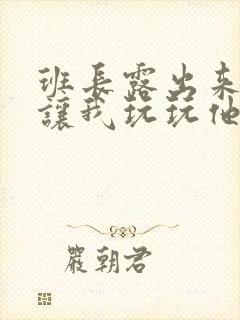 班長露出来
讓我玩玩他
嚴朝君